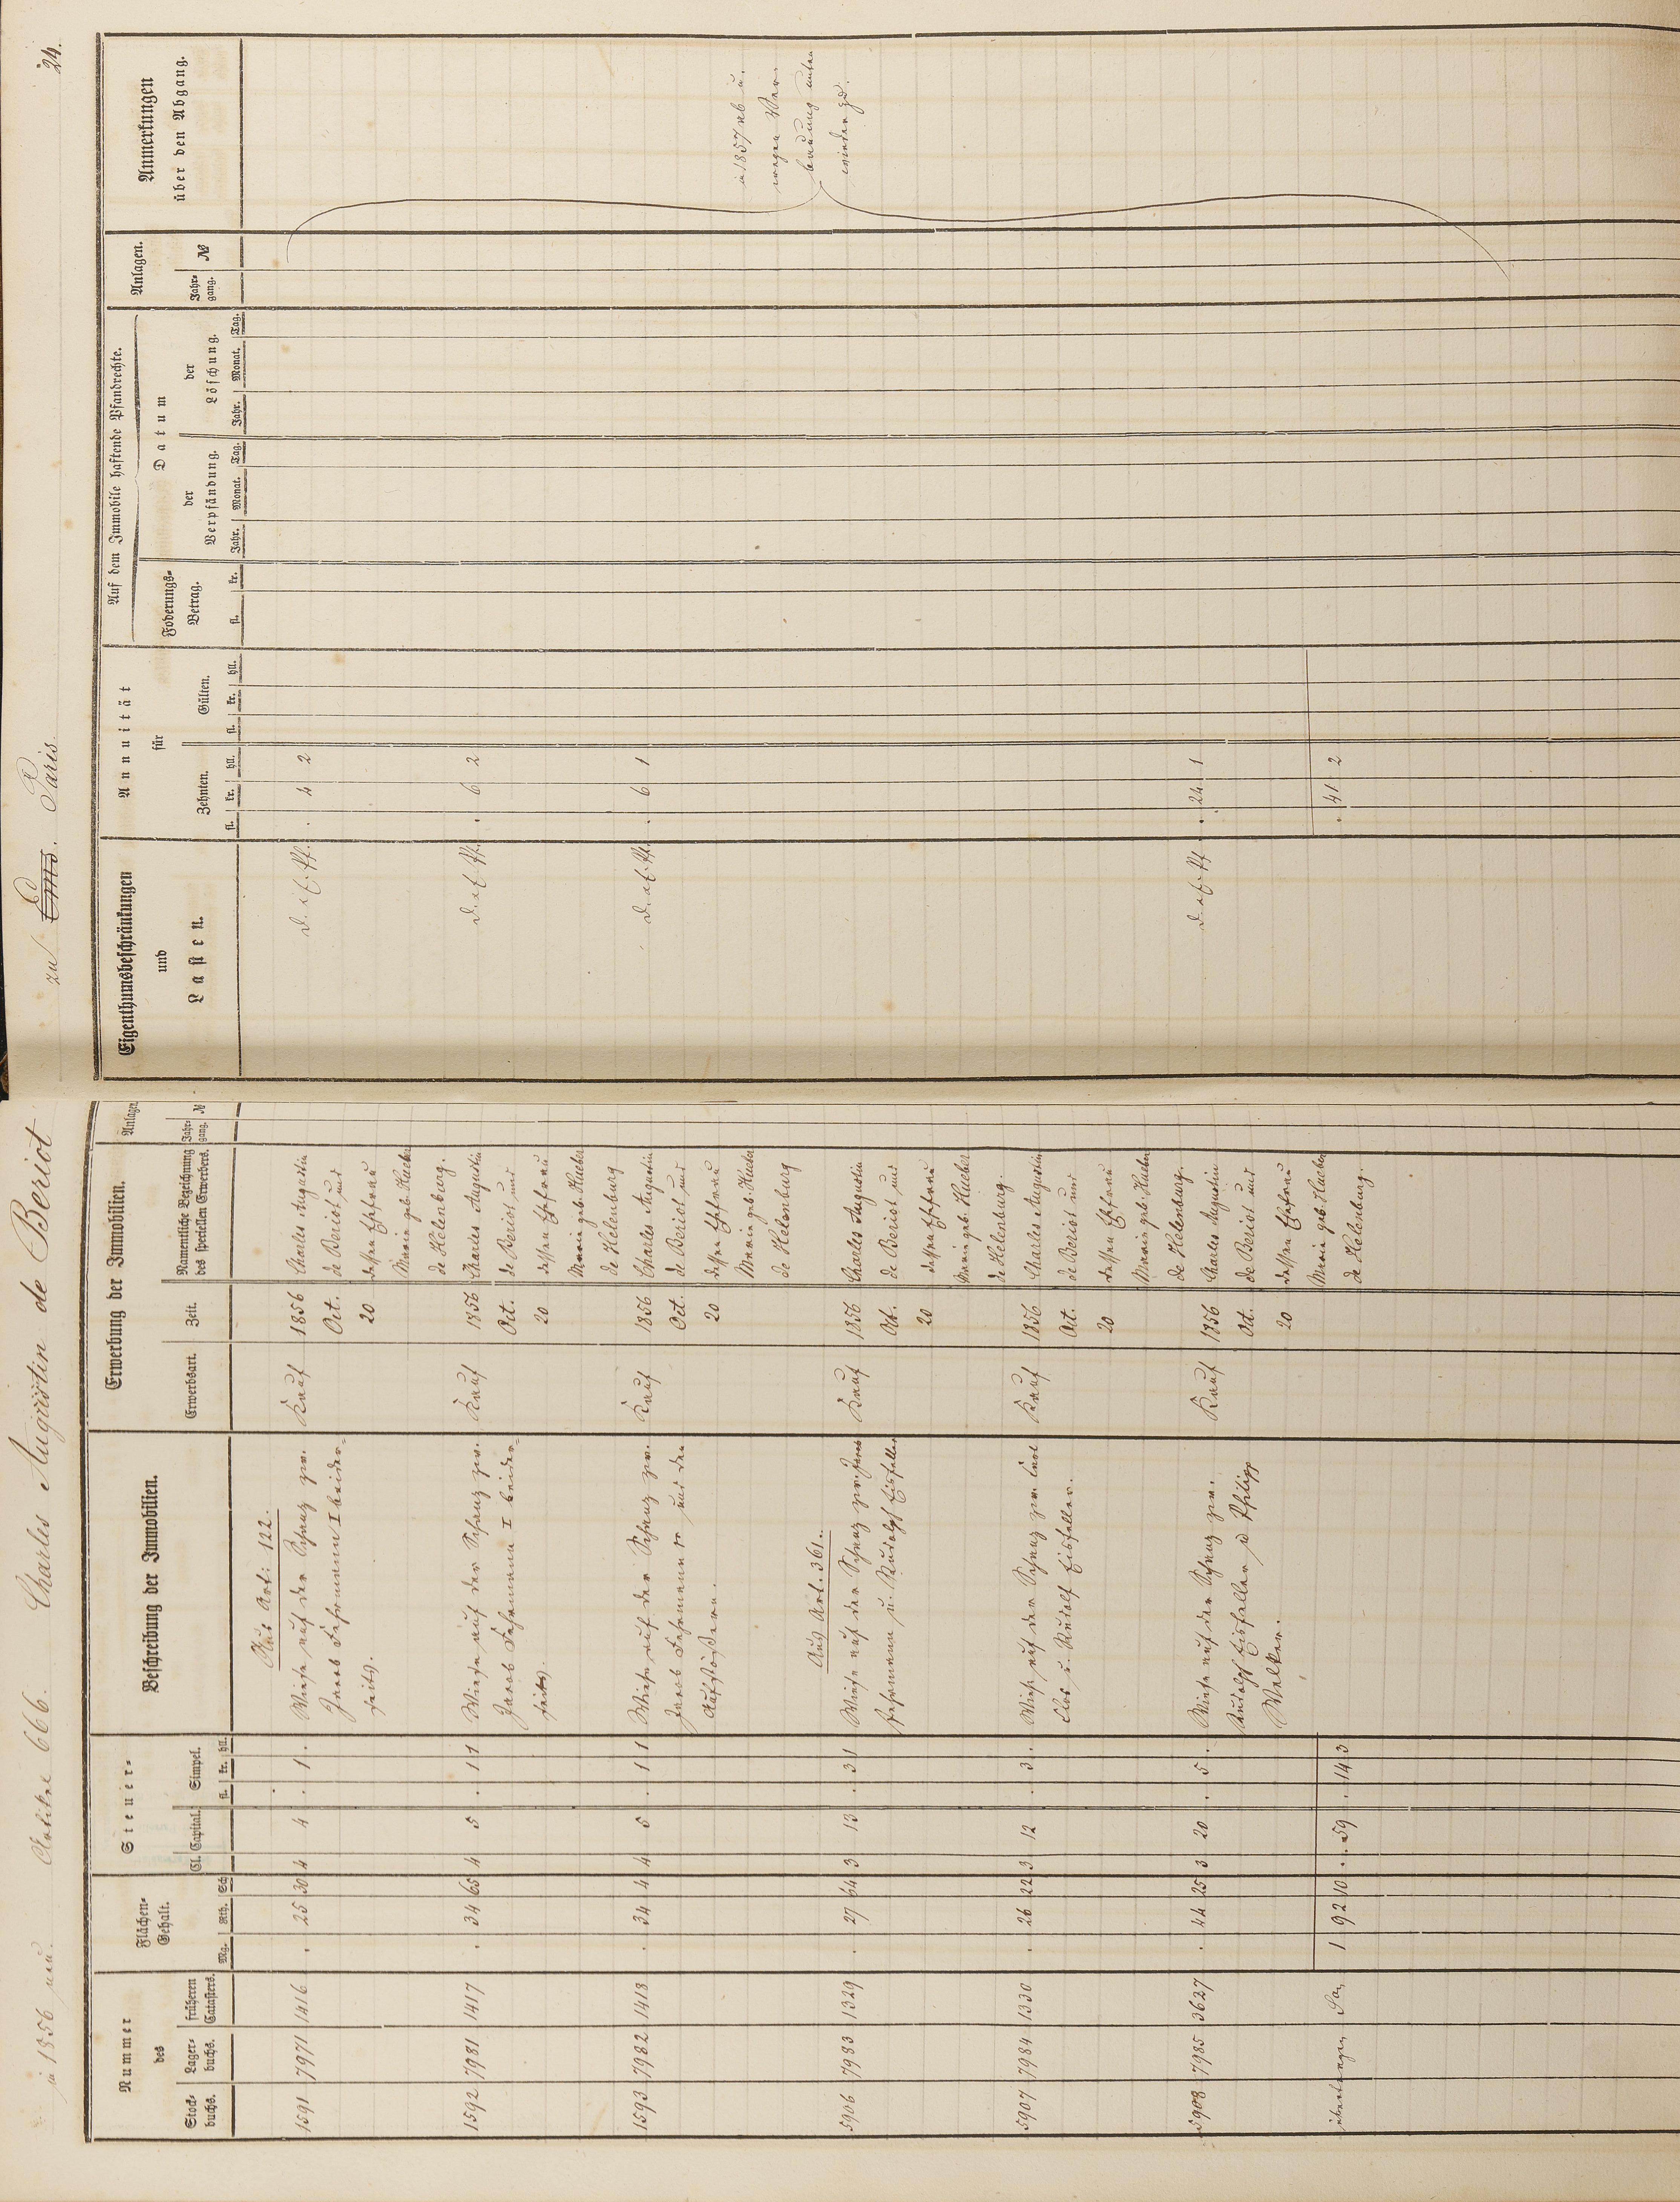 in 1856 neu. Artikel 666. Charles Augustin de Beriot zu Ems. Paris. 24.
Nummer
des
Stock-
buchs.
Lager-
buchs.
früheren
Catasters.
Flächen-
Gehalt.
Mg. Rth. Sch
Steuer-
Cl. Capital. Simpel.
fl. kr. hll.
Beschreibung der Immobilien.
Erwerbung der Immobilien.
Erwerbsart.
Zeit.
Namentliche Bezeichnung
des speciellen Erwerbers.
Anlagen
Jahr-
gang.
№
Eigenthumsbeschränkungen
und
Lasten.
Annuität
für
Zehnten. Gülten.
fl. kr. hll. fl. kr. hll.
Auf dem Immobile haftende Pfandrechte.
Foderungs-
Betrag.
fl. kr.
Datum
der
Verpfändung.
Jahr. Monat. Tag.
der
Löschung.
Jahr. Monat. Tag.
Anlagen.
Jahr-
gang.
№
Anmerkungen
über den Abgang.
Aus Art: 122.
1591 7971 1416 . 25 30 4 4 . 1 . Wiese auf der Schanz zw. Kauf 1856 Charles Augustin . 4 2
Jacob Fehrmann I beider- Oct. de Beriot und
seits. 20 dessen Ehefrau
Marie geb. Hueber
de Helenburg.
1592 7981 1417 . 34 65 4 5 . 1 1 Wiese auf der Schanz zw. Kauf 1856 Charles Augustin . 6 2
Jacob Fehrmann I beider- Oct. de Beriot und
seits. 20 dessen Ehefrau
Marie geb. Hueber
de Helenburg
1593 7982 1418 . 34 4 4 5 1 1 Wiese auf der Schanz zw. Kauf 1856 Charles Augustin . 6 1
Jacob Fehrmann und den Oct. de Beriot und
Aufstößern. 20 dessen Ehefrau
Marie geb. Hueber
de Helenburg
Aus Art. 361.
5906 7983 1329 . 27 64 3 13 . 3 1 Wiese auf der Schanz zw. Jacob Kauf 1856 Charles Augustin
Fehrmann u. Rudolph Eisfeller Oct. de Beriot und
20 dessen Ehefrau
Marie geb. Hueber
de Helenburg.
5907 7984 1330 . 26 22 3 12 . 3 . Wiese auf der Schanz zw. Kauf 1856 Charles Augustin
u. Rudolf Eisfeller. Oct. de Beriot und
20 dessen Ehefrau
Marie geb. Hueber
de Helenburg.
5908 7985 3627 . 44 25 3 20 . 5 . Wiese auf der Schanz zw. Kauf 1856 Charles Augustin . 24 1
Rudolph Eisfeller u Philipp Oct. de Beriot und
Welker. 20 dessen Ehefrau
Marie geb. Hueber
de Helenburg.
übertragen 1 92 10 . . 59 . 14 3 . 41 2
in 1857 ab u.
wegen Ver-
bauung unten
wieder zu.